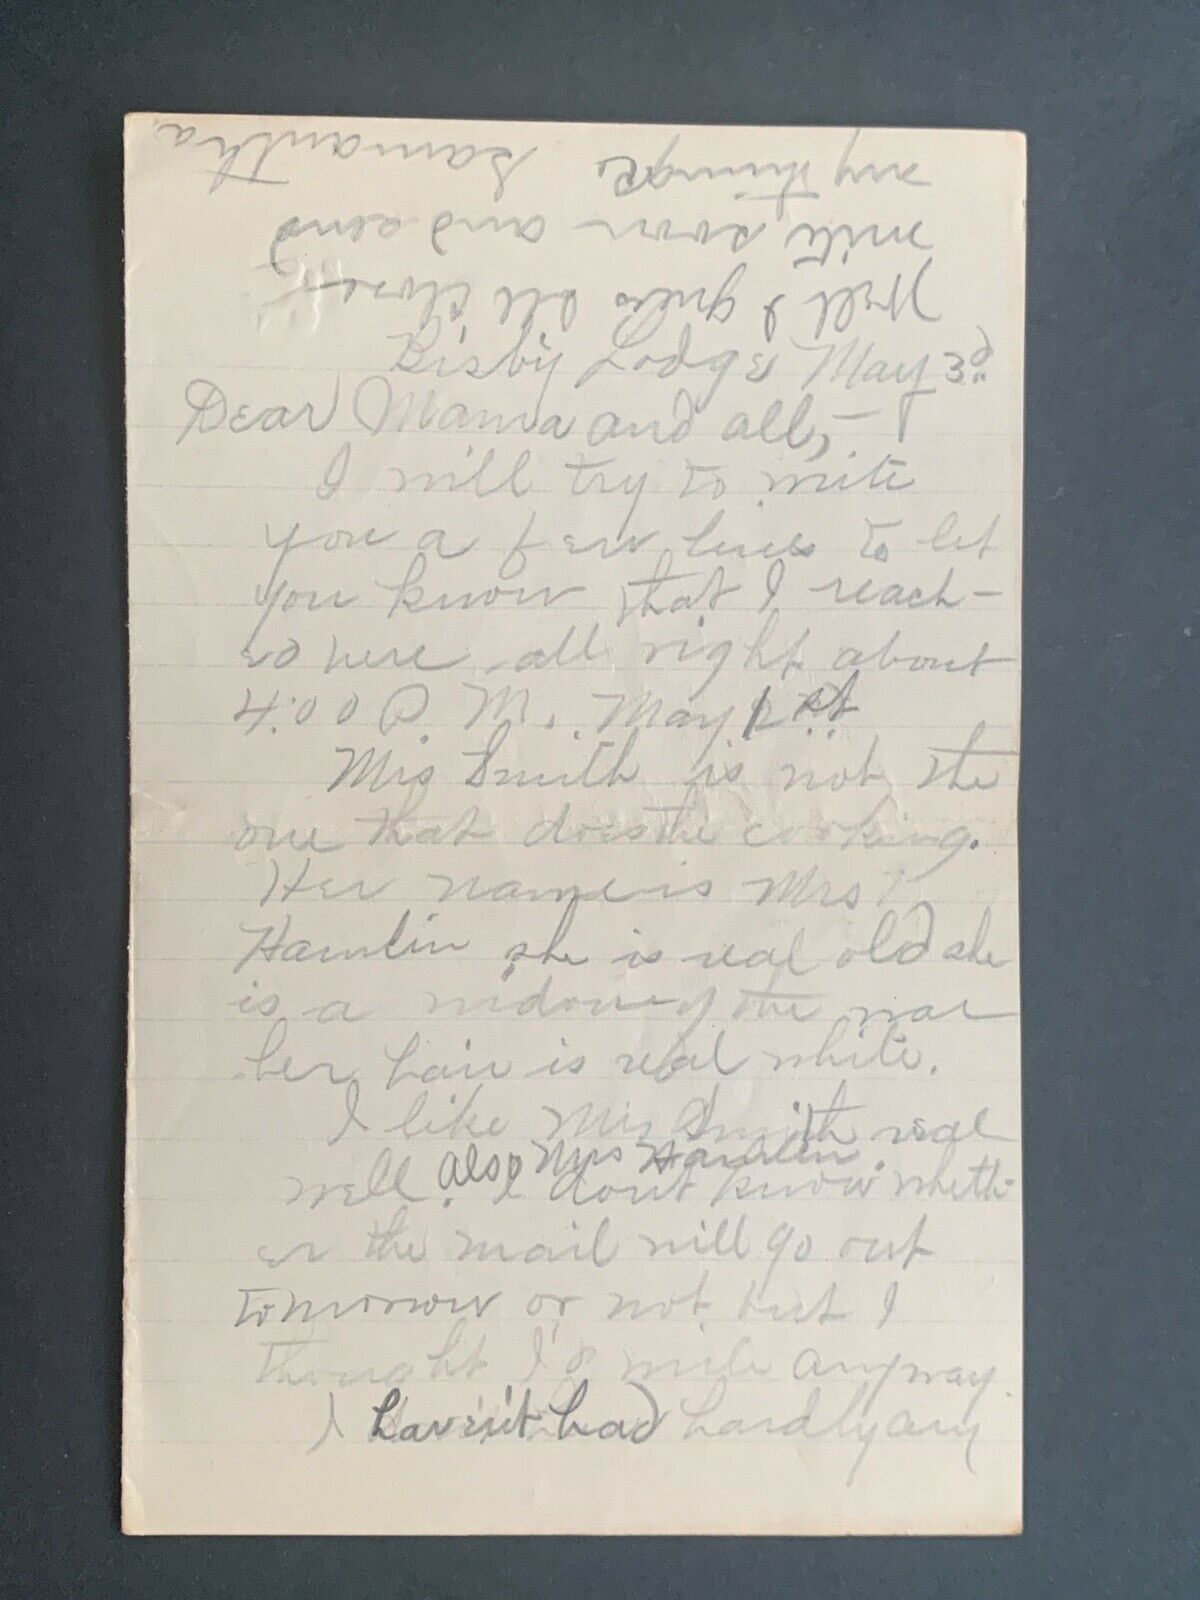 Bisby Lodge May 3rd
Dear Mama and all, —
I will try to write
you a few lines to let
you know that I reach-
ed here all right about
4:00 P. M. May 1st
Mrs Smith is not the
one that does the cooking.
Her name is Mrs
Hamlin she is real old she
is a widow of the war
her hair is real white.
I like Mrs Smith real
well. also Mrs Hamlin. I dont know wheth-
er the mail will go out
tomorrow or not, but I
thought I'd write anyway.
I haven't had hardly any
Well I guess Ill close
write soon and send
my things
Samantha.